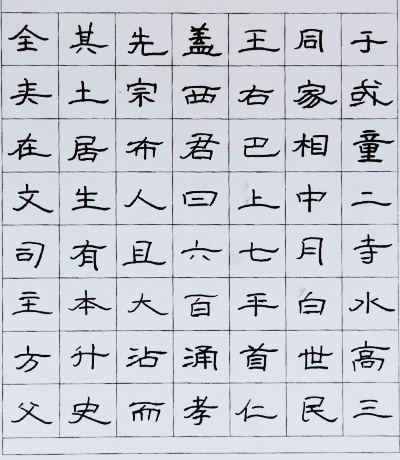 于或童二寺水高三
同家相中月白世民
王右巴上七平首仁
盖西君曰六百涌孝
先宗布人且大沾而
其土居生有本升史
全在文司主方父